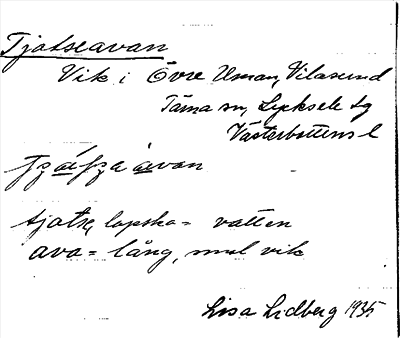 Tjatseavan
Vik i Övre Uman, Vilasund
Tärna sn, Lycksele lg
Västerbottens l
avan
tjatse lapska = vatten
ava = lång, smal vik
Lisa Lidberg 1935